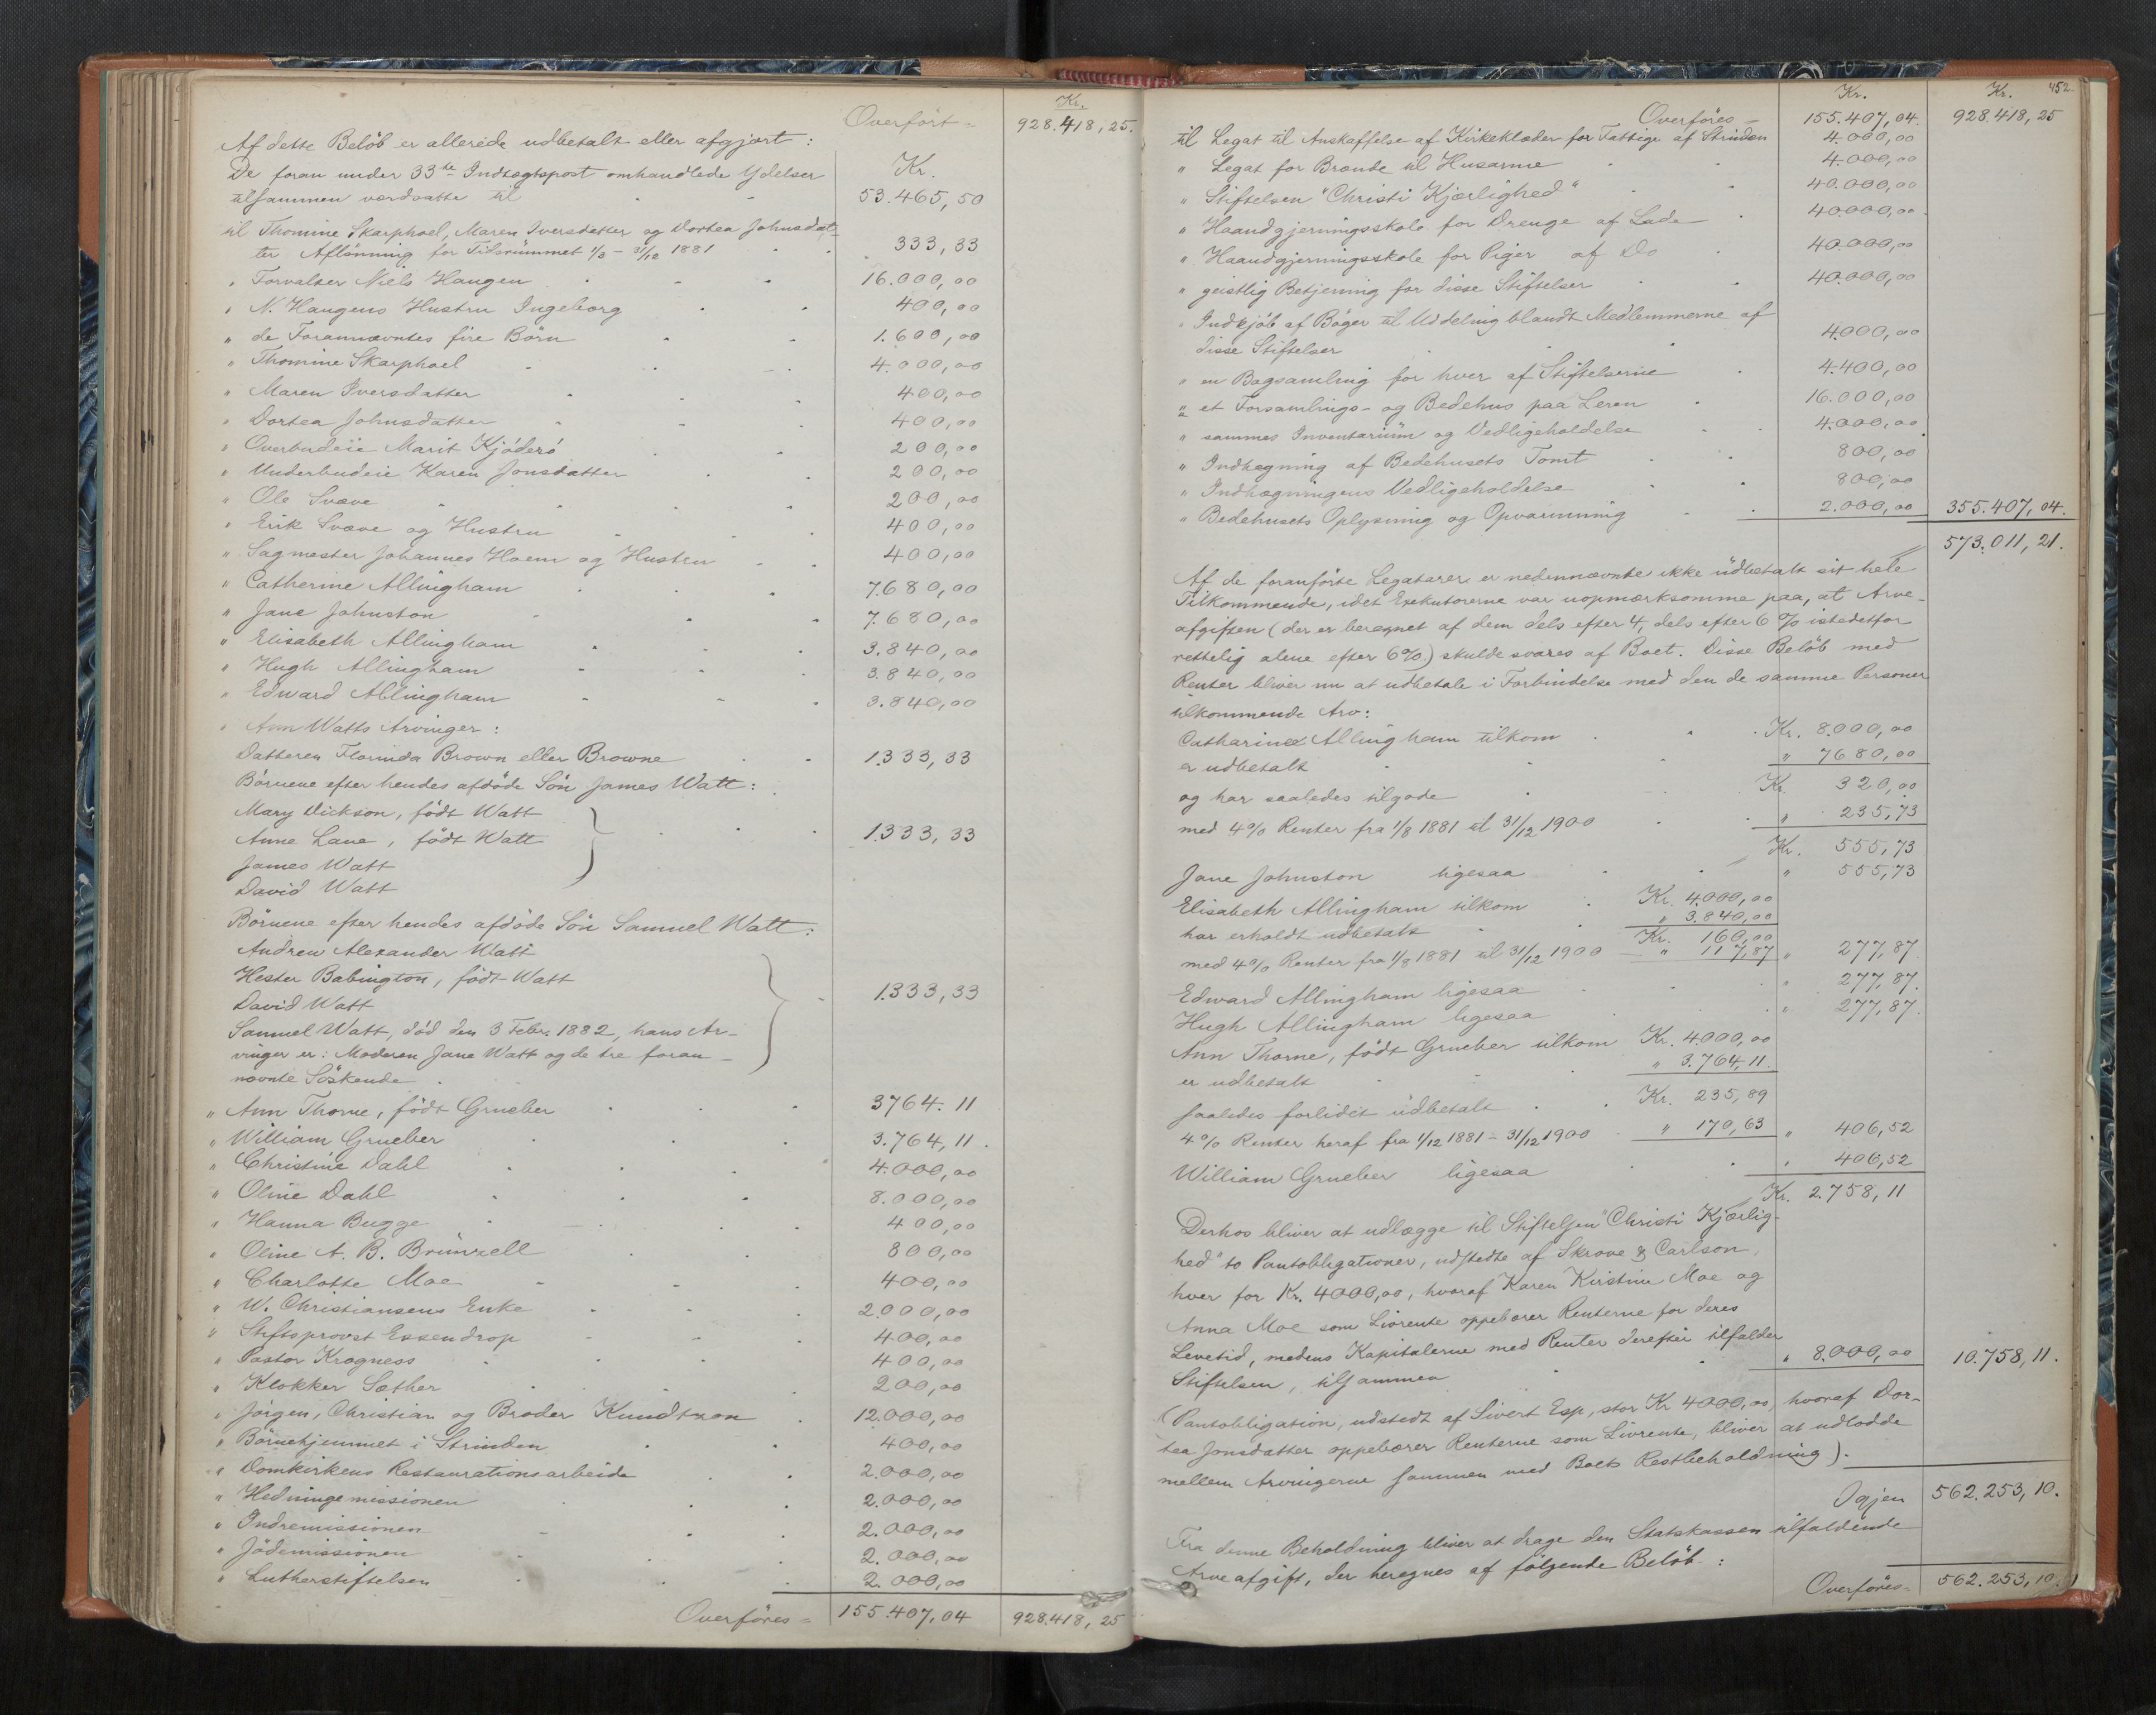 Kr.
Overført = 928.418,25.
Af dette Beløb er allerede udbetalt eller afgjort:
De foran under 33te Indtægtspost omhandlede Ydelser Kr.
tilsammen værdsatte til 53.465,50
til Thomine Skarphoel, Maren Iversdatter og Dortea Johnsdat-
ter Aflønning for Tidsrummet 1/8 - 31/12 1881 333,33
" Forvalter Niels Haugen 16.000,00
" N. Haugens Hustru Ingeborg 400,00
" de Forannævntes fire Børn 1.600,00
" Thomine Skarphoel 4.000,00
" Maren Iversdatter 400,00
" Dortea Johnsdatter 400,00
" Overbudeie Marit Kjøderö 200,00
" Underbudeie Karen Jonsdatter 200,00
" Ole Svæve 200,00
" Erik Svæve og Hustru 400,00
" Sagmester Johannes Hoem og Hustru 400,00
" Catherine Allingham 7.680,00
" Jane Johnston 7.680,00
" Elisabeth Allingham 3.840,00
" Hugh Allingham 3.840,00
" Edward Allingham 3.840,00
" Ann Watts Arvinger:
Datteren Florinda Brown eller Browne 1.333,33
Börnene efter hendes afdöde Sön James Watt:
Mary Dickson, födt Watt
Anne Lane, födt Watt 1.333,33
James Watt
David Watt
Börnene efter hendes afdöde Sön Samuel Watt:
Andrew Alexander Watt
Hester Babington, födt Watt
David Watt 1.333,33
Samuel Watt, död den 3 Febr. 1882, hans Ar-
vinger er: Moderen Jane Watt og de tre foran-
nævnte Söskende
" Ann Thorne, födt Grueber 3764.11
" William Grueber 3.764,11.
" Christine Dahl 4.000,00
" Oline Dahl 8.000,00
" Hanna Bugge 400,00
" Oline A. B. Brünzell 800,00
" Charlotte Moe 400,00
" W. Christiansens Enke 2.000,00
" Stiftsprovst Essendrop 400,00
" Pastor Krogness 400,00
" Klokker Sæther 200,00
" Jörgen, Christian og Broder Knudtzon 12.000,00
" Börnehjemmet i Strinden 400,00
" Domkirkens Restaurationsarbeide 2.000,00
" Hedningemissionen 2.000,00
" Indremissionen 2.000,00
" Jödemissionen 2.000,00
" Lutherstiftelsen 2.000,00
Overföres = 155.407,04 928.418,25
452.
Kr. Kr.
Overföres = 155.407,04. 928.418,25
til Legat til Anskaffelse af Kirkeklæder for Fattige af Strinden 4.000,00
" Legat for Brænde til Husarme 4.000,00
" Stiftelsen "Christi Kjærlighed" 40.000,00
" Haandgjerningsskole for Drenge af Lade 40.000,00
" Haandgjerningsskole for Piger af Do 40.000,00
" geistlig Betjening for disse Stiftelser 40.000,00
" Indkjöb af Böger til Uddeling blandt Medlemmerne af
disse Stiftelser 4.000,00
" en Bogsamling for hver af Stiftelserne 4.400,00
" et Forsamlings- og Bedehus paa Leren 16.000,00
" sammes Inventarium og Vedligeholdelse 4.000,00
" Indhegning af Bedehusets Tomt 800,00
" Indhegningens Vedligeholdelse 800,00
" Bedehusets Oplysning og Opvarmning 2.000,00 355.407,04.
573.011,21.
Af de foranförte Legatarer er nedennævnte ikke udbetalt sit hele
Tilkommende, idet Exekutorerne var uopmærksomme paa, at Arve-
afgiften (der er beregnet af dem dels efter 4, dels efter 6 % istedetfor
rettelig alene efter 6%) skulde svares af Boet. Disse Beløb med
Renter bliver nu at udbetale i Forbindelse med den de samme Personer
tilkommende Arv:
Catharine Allingham tilkom Kr. 8.000,00
er udbetalt " 7680,00
og har saaledes tilgode Kr. 320,00
med 4% Renter fra 1/8 1881 til 31/12 1900 " 235,73
Kr. 555,73
Jane Johnston ligesaa " 555,73
Elisabeth Allingham tilkom Kr. 4.000,00
har erholdt udbetalt " 3.840,00
Kr. 160,00
med 4% Renter fra 1/8 1881 til 31/12 1900 " 117,87 " 277,87.
Edward Allingham ligesaa " 277,87.
Hugh Allingham ligesaa " 277,87.
Ann Thorne, födt Grueber tilkom Kr. 4.000,00
er udbetalt " 3.764,11.
saaledes forlidet udbetalt Kr. 235,89
4% Renter heraf fra 1/12 1881 - 31/12 1900 " 170,63 " 406,52
William Grueber ligesaa " 406,52
Kr. 2.758,11
Derhos bliver at udlægge til Stiftelsen "Christi Kjærlig-
hed" to Pantobligationer, udstedte af Skrove & Carlson,
hver for Kr. 4000,00, hvoraf Karen Kirstine Moe og
Anna Moe som Livrente oppebærer Renterne for deres
Levetid, medens Kapitalerne med Renter derefter tilfalder
Stiftelsen, tilsammen " 8.000,00 10.758,11.
(Pantobligation, udstedt af Sivert Esp, stor Kr 4000,00, hvoraf Dor-
tea Jonsdatter oppebærer Renterne som Livrente, bliver at udlodde
mellem Arvingerne sammen med Boets Restbeholdning).
Igjen 562.253,10.
Fra denne Beholdning bliver at drage den Statskassen tilfaldende
Arveafgift, der beregnes af fölgende Belöb:
Overföres = 562.253,10.